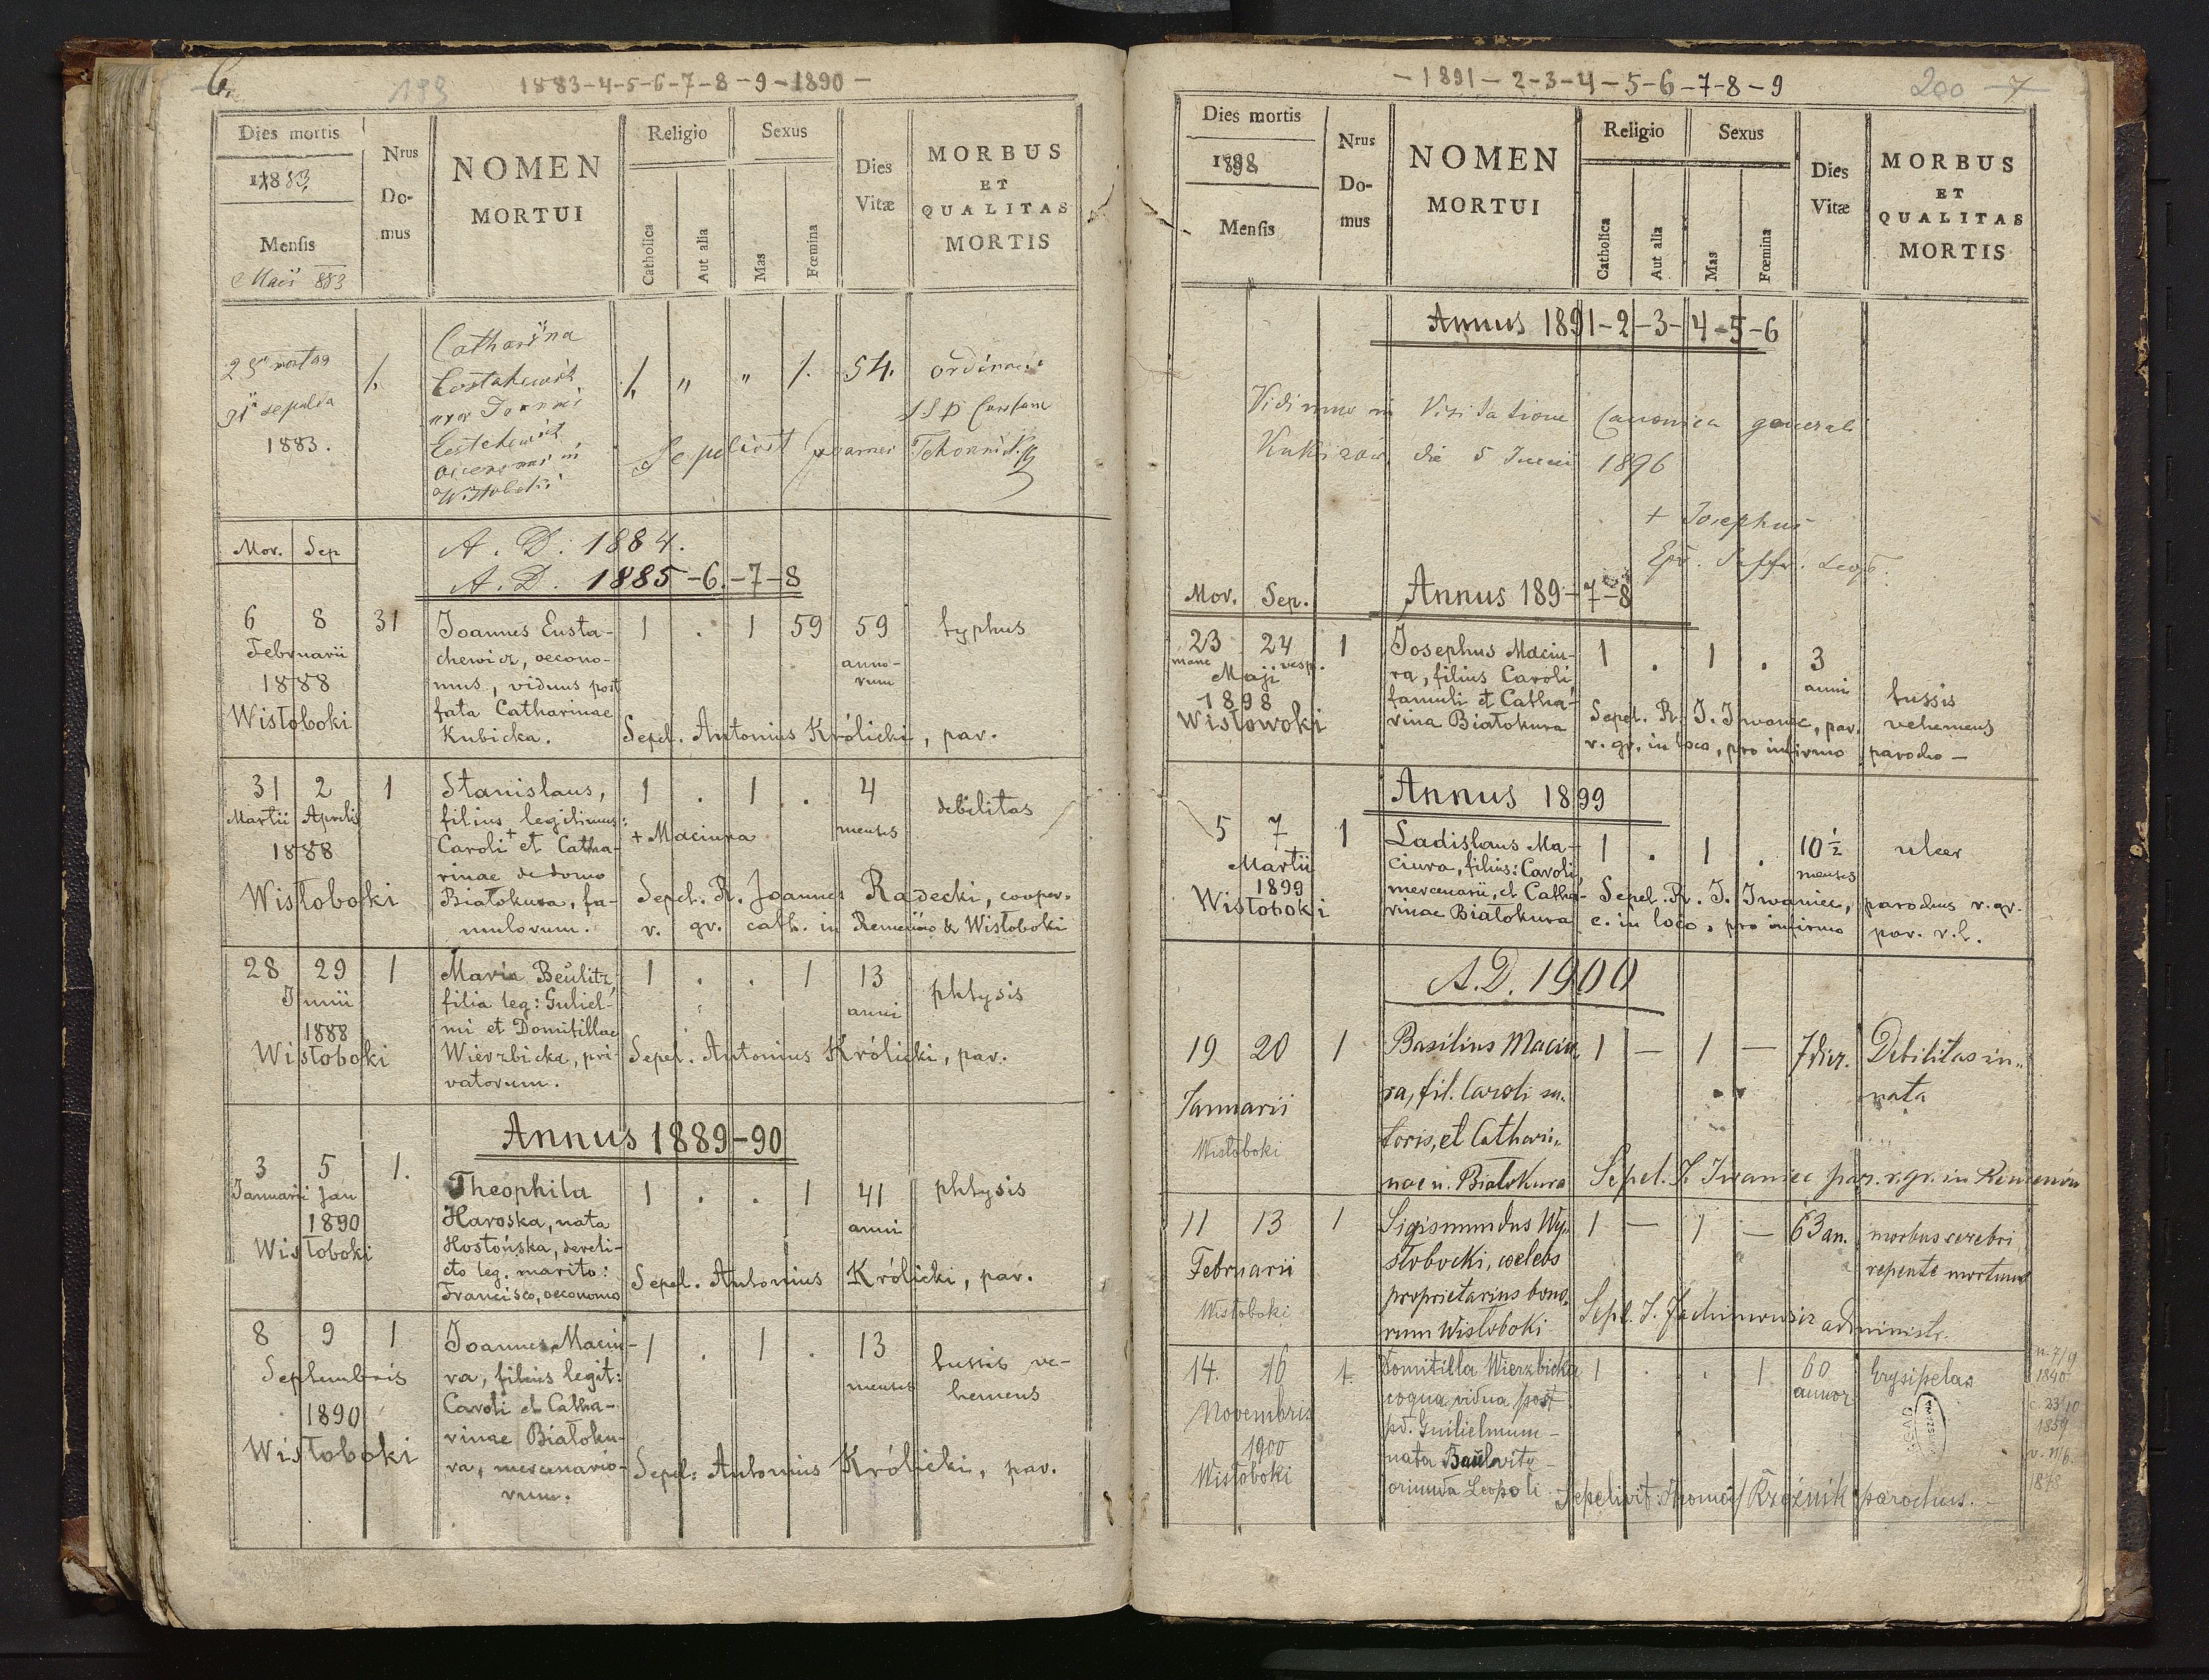 6.
199
1883-4-5-6-7-8-9-1890-
Dies mortis
1883
Mensis
Maii 883
Nrus Do-mus
NOMEN
MORTUI
Religio
Catholica
Aut alia
Sexus
Mas
Fœmina
Dies
Vitæ
MORBUS
ET
QUALITAS
MORTIS
1883.
1.
Catharina
uxor Joannis
Wistoboki
1. " " 1. 54.
ordinaria
Mor. Sep
A. D. 1884.
A. D. 1885-6-7-8
6 8 31
Februarii
1888
Wistoboki
Joannes Eusta-
chewicz, oecono-
mus, viduus post
fata Catharinae
Kubicka.
1 . 1 59 59
anno-
rum
typhus
Sepel. Antonius Królicki, par.
31 2 1
Martii Aprilis
1888
Wistoboki
Stanislaus,
filius legitimus:
Caroli + et Catha-
rinae de domo
Białokura, fa-
mulorum.
1 . 1 . 4
menses
debilitas
+ Maciura
Sepel. R. Joannes Radecki, cooper.
r. gr. cath. in Remenów & Wistoboki
28 29 1
Junii
1888
Wistoboki
Maria Beulitz,
filia leg: Guliel-
mi et Domitillae
Wierzbicka, pri-
vatorum.
1 . . 1 13
anni
phtysis
Sepel. Antonius Królicki, par.
Annus 1889-90
3 5 1.
Januarii Jan
1890
Wistoboki
Theophila
Haroska, nata
Hostońska, dereli-
cto leg. marito:
Francisco, oeconomo
1 . . 1 41
anni
phtysis
Sepel. Antonius Królicki, par.
8 9 1
Septembris
1890
Wistoboki
Joannes Maciu-
ra, filius legit:
Caroli et Catha-
rinae Białoku-
ra, mercenario-
rum.
1 . 1 . 13
menses
tussis ve-
hemens
Sepel: Antonius Królicki, par.
-1891-2-3-4-5-6-7-8-9
200 7
Dies mortis
1898
Mensis
Nrus Do-mus
NOMEN
MORTUI
Religio
Catholica
Aut alia
Sexus
Mas
Fœmina
Dies
Vitæ
MORBUS
ET
QUALITAS
MORTIS
Annus 1891-2-3-4-5-6
Vidimus in Visitatione Canonica generali
Kukizów die 5 Junii 1896
+ Josephus
Ep. Suffr. Leop.
Mor. Sep.
Annus 189-7-8
23 24 1
mane vesp.
Maji
1898
Wistowoki
Josephus Maciu-
ra, filius Caroli,
famuli et Catha-
rina Białokura
1 . 1 . 3
anni
tussis
vehemens
Sepel. R. J. Iwaniec, par.
r. gr. in loco, pro infirmo parocho -
Annus 1899
5 7 1
Martii
1899
Wistoboki
Ladislaus Ma-
ciura, filius: Caroli,
mercenarii, et Catha-
rinae Białokura
1 . 1 . 10 1/2
menses
ulcer
Sepel. R. J. Iwaniec, parochus r. gr.
c. in loco, pro infirmo par. r. l.
A.D. 1900
19 20 1
Januarii
Wistoboki
Basilius Maciu-
ra, fil. Caroli su-
toris, et Cathari-
nae n. Białokura
1 — 1 — 7 dier.
Debilitas in-
nata
Sepel. J. Iwaniec par. r. gr. in Remenów
11 13 1
Februarii
Wistoboki
Sigismundus Wy-
stobocki, coelebs
proprietarius bono-
rum Wistoboki
1 — 1 — 63 an.
morbus cerebri
repente mortuus
Sepel. J. Jachimowicz administr.
14 16 1.
Novembris
1900
Wistoboki
Domitilla Wierzbicka
coqua, vidua post
pd. Guilielmum
nata Baulvitz
oriunda Leopoli
1 . . 1 60
annor
Erysipelas
Sepelivit: Thomas Rzeźnik parochus.
n. 7/9
1840
c. 23/10
1859
v. 11/6
1878
AGAD
WARSZAWA